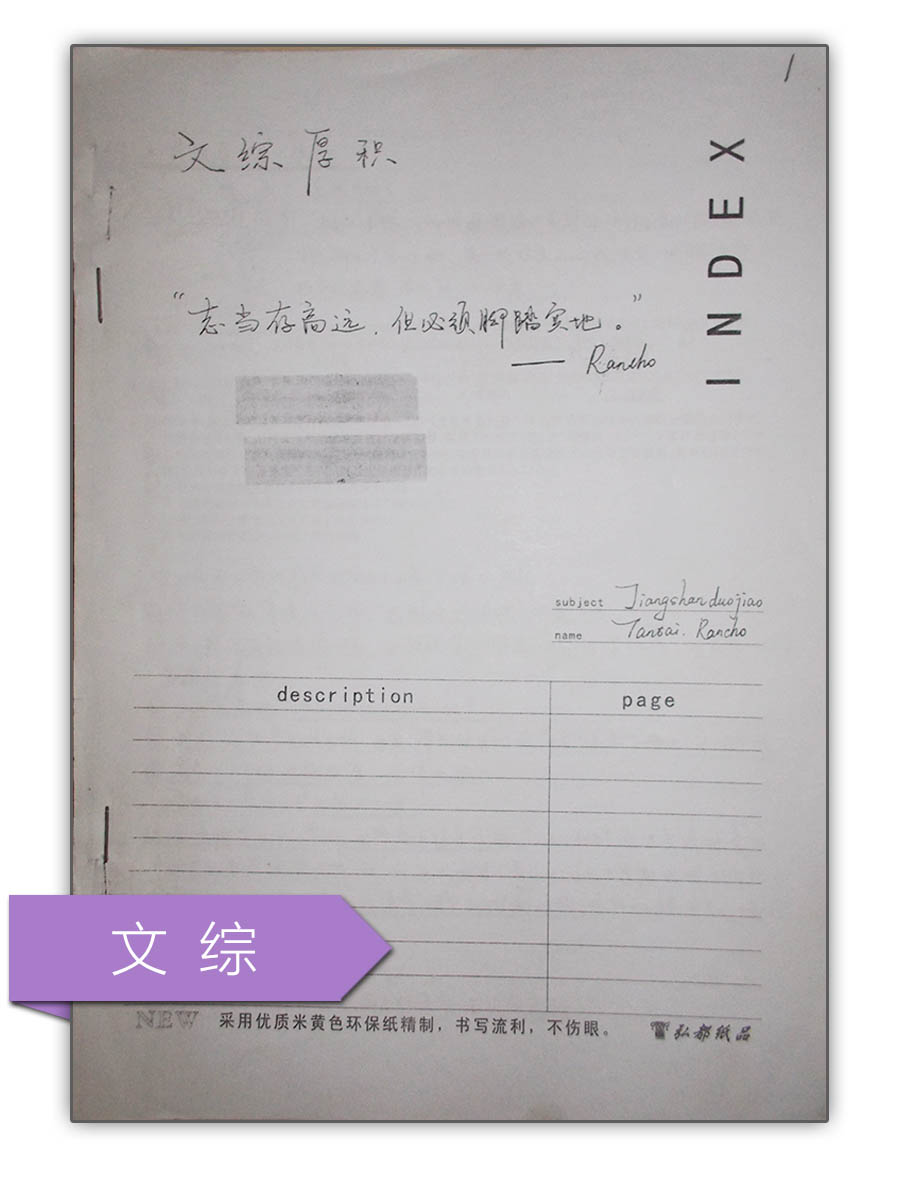 1
文综厚积
INDEX
“志当存高远，但必须脚踏实地。”
—— Rancho
subject Jiangshanduojiao
name Tansai. Rancho
description page
文 综
NEW 采用优质米黄色环保纸精制，书写流利，不伤眼。 弘都纸品